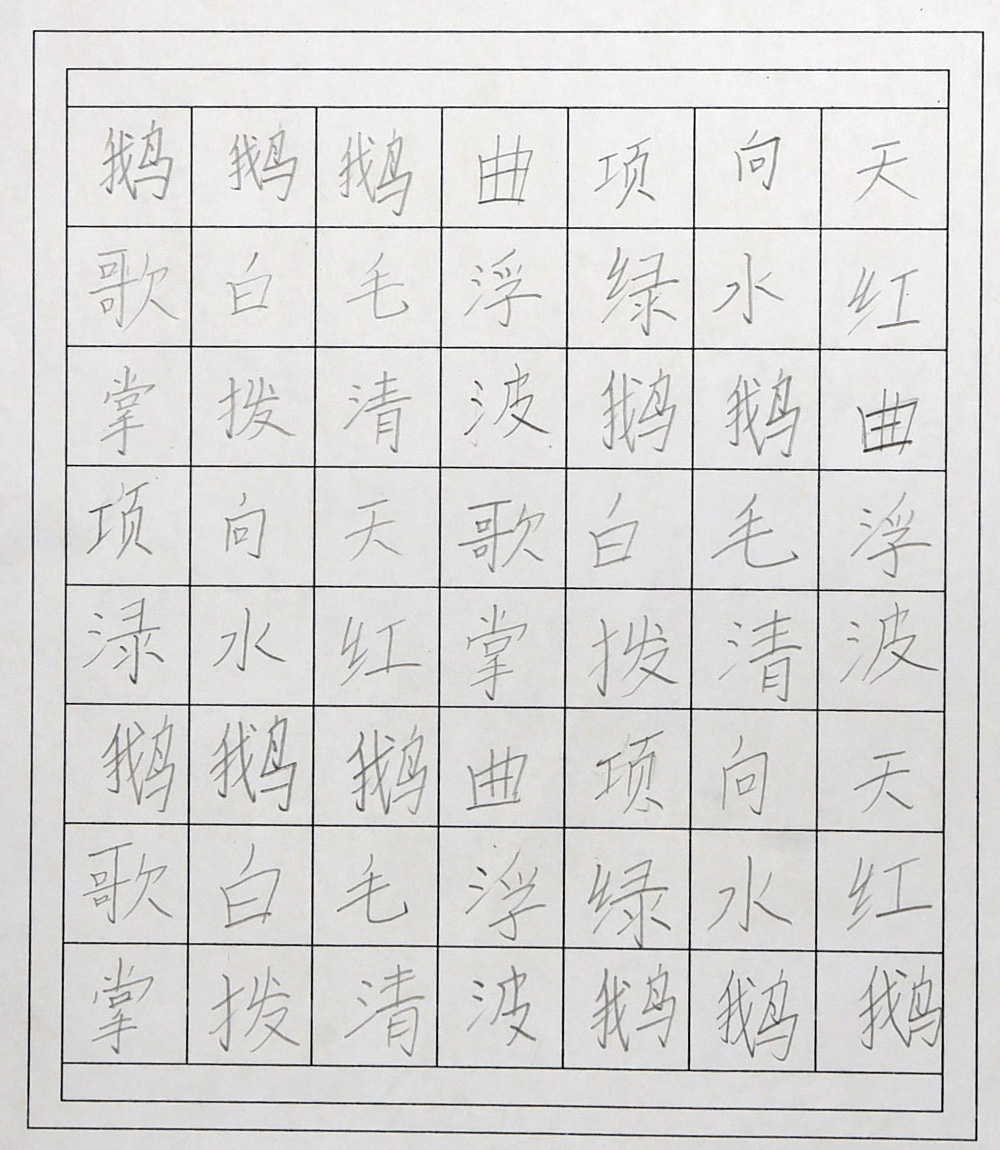 鹅鹅鹅曲项向天
歌白毛浮绿水红
掌拨清波鹅鹅曲
项向天歌白毛浮
渌水红掌拨清波
鹅鹅鹅曲项向天
歌白毛浮绿水红
掌拨清波鹅鹅鹅